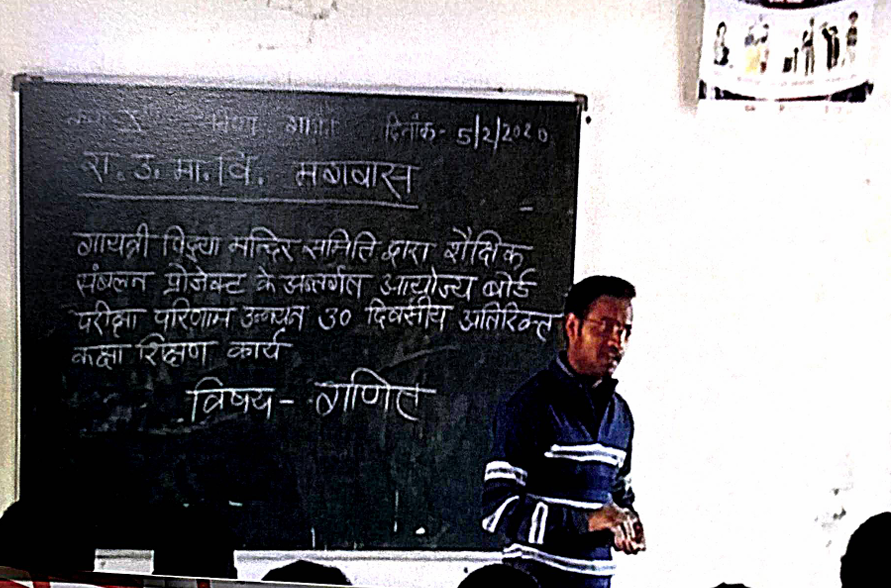 दिनांक- 5/2/2020
रा. उ. मा. वि. मगवास
गायत्री विद्या मन्दिर समिति द्वारा शैक्षिक
संबलन प्रोजेक्ट के अन्तर्गत आयोज्य बोर्ड
परीक्षा परिणाम उन्नयन 30 दिवसीय अतिरिक्त
कक्षा शिक्षण कार्य
विषय- गणित